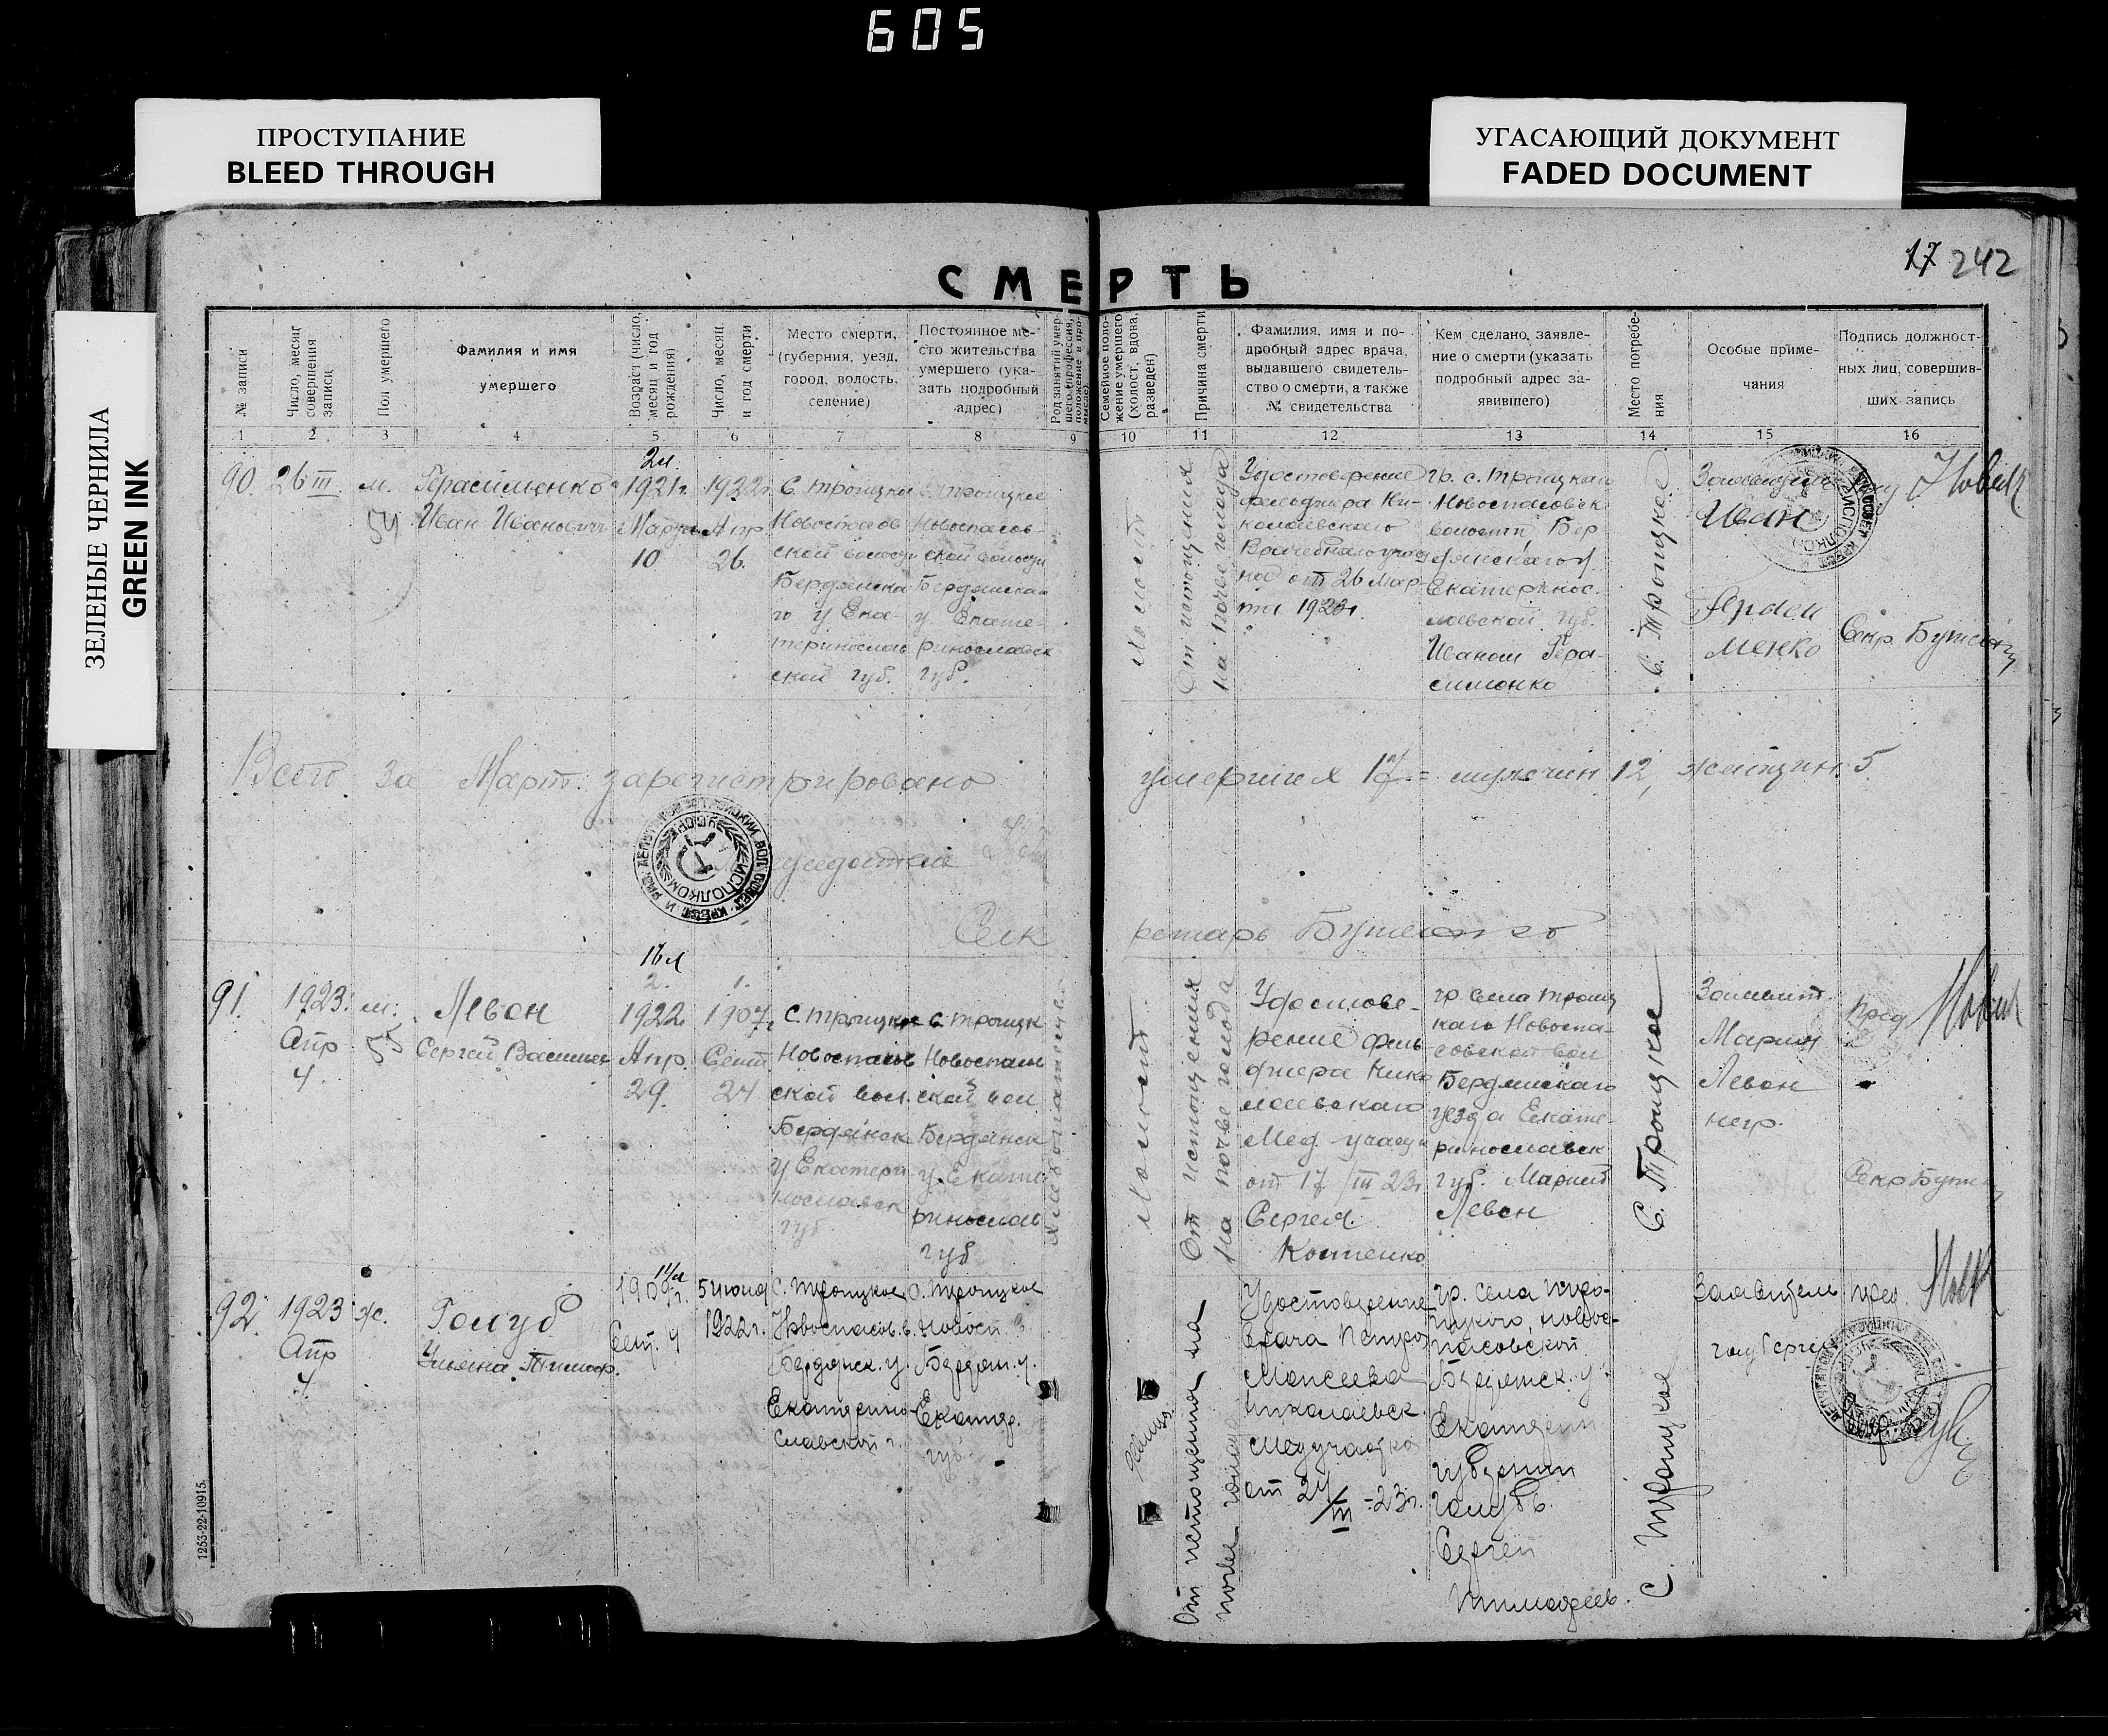 605
ПРОСТУПАНИЕ
BLEED THROUGH
УГАСАЮЩИЙ ДОКУМЕНТ
FADED DOCUMENT
ЗЕЛЕНЫЕ ЧЕРНИЛА
GREEN INK
17 242
СМЕРТЬ
№ записи
Число, месяц
совершения
записи
Пол умершего
Фамилия и имя
умершего
Возраст (число,
месяц и год
рождения)
Число, месяц
и год смерти
Место смерти,
(губерния, уезд,
город, волость,
селение)
Постоянное ме-
сто жительства
умершего (ука-
зать подробный
адрес)
Род занятий умер-
шего, профессия,
положение в про-
мысле
Семейное поло-
жение умершего
(холост, вдова,
разведен)
Причина смерти
Фамилия, имя и по-
дробный адрес врача,
выдавшего свидетель-
ство о смерти, а также
№ свидетельства
Кем сделано, заявле-
ние о смерти (указать
подробный адрес за-
явившего)
Место погребе-
ния
Особые приме-
чания
Подпись должност-
ных лиц, совершив-
ших запись
1 2 3 4 5 6 7 8 9 10 11 12 13 14 15 16
90. 26 III. м.
54
Герасименко
Иван Иванович
1921г.
Марта
10
1922г.
Апр.
26.
С. Троицкое
Новоспасов
ской волости
Бердянско
го у. Ека-
теринослав
ской губ.
С. Троицкое
Новоспасов-
ской волости
Бердянского
у. Екате-
ринославск
губ.
Холост
От истощения
на почве голода
Удостоверение
фельдшера Ни-
колаевского
Врачебного участ
от 26 Мар-
та
гр. с. Троицкаго
Новоспасовск
волости, Бер
дянскаго у.
Екатеринос.
лавской губ.
Иваном Гера-
сименко
С. Троицкое
Иван
Гераси
менко
Секр. Бутенко
Всего за Март зарегистрировано
умерших 17 = мужчин 12, женщин 5.
Сек
ретарь Бутенко
91.
1923.
Апр
4
м.
55
Левон
Сергей Васильев
16л
2.
1922
Апр.
29.
1.
1907г.
Сент
24
С. Троицкое
Новоспасов
ской вол.
Бердянск
у Екатери
нославск
губ
С. Троицк
Новоспасов
ской вол
Бердянск
у. Екате
ринослав
губ
Холост.
От истощения
на почве голода
Удостове-
рение фель-
дшера Нико
лаевскаго
Мед. участк
от 17/III 23г
Сергея
Костенко
гр. села Троиц
каго Новоспа-
совской вол
Бердянскаго
уезда Екате-
ринославск
губ. Марией
Левон
С. Троицкое
Заявит.
Мария
Левон
негр.
пред
Секр Бутен
92.
1923
Апр
4
ж.
Голуб
Ульяна Тимоф.
14л
Сент. 4
5 июня
1922г.
С. Троицкое
Новоспасов. в.
Бердянск. у.
Екатерино-
славской г.
С. Троицкое
Новосп. в
Бердян. у.
Екатер.
губ.
От истощения на
почве голода
Удостоверение
врача Петра
Моисеева
Николаевск.
медучастка
от 24/III-23г.
гр. села Тро-
ицкого, Новос-
пасовской
Бердянск. у
Екатерин
губернии
Голубь
Сергей
Тимофеев.
С. Троицкое
Заявитель
голуб Сергей
пред.
1253-22-10915.